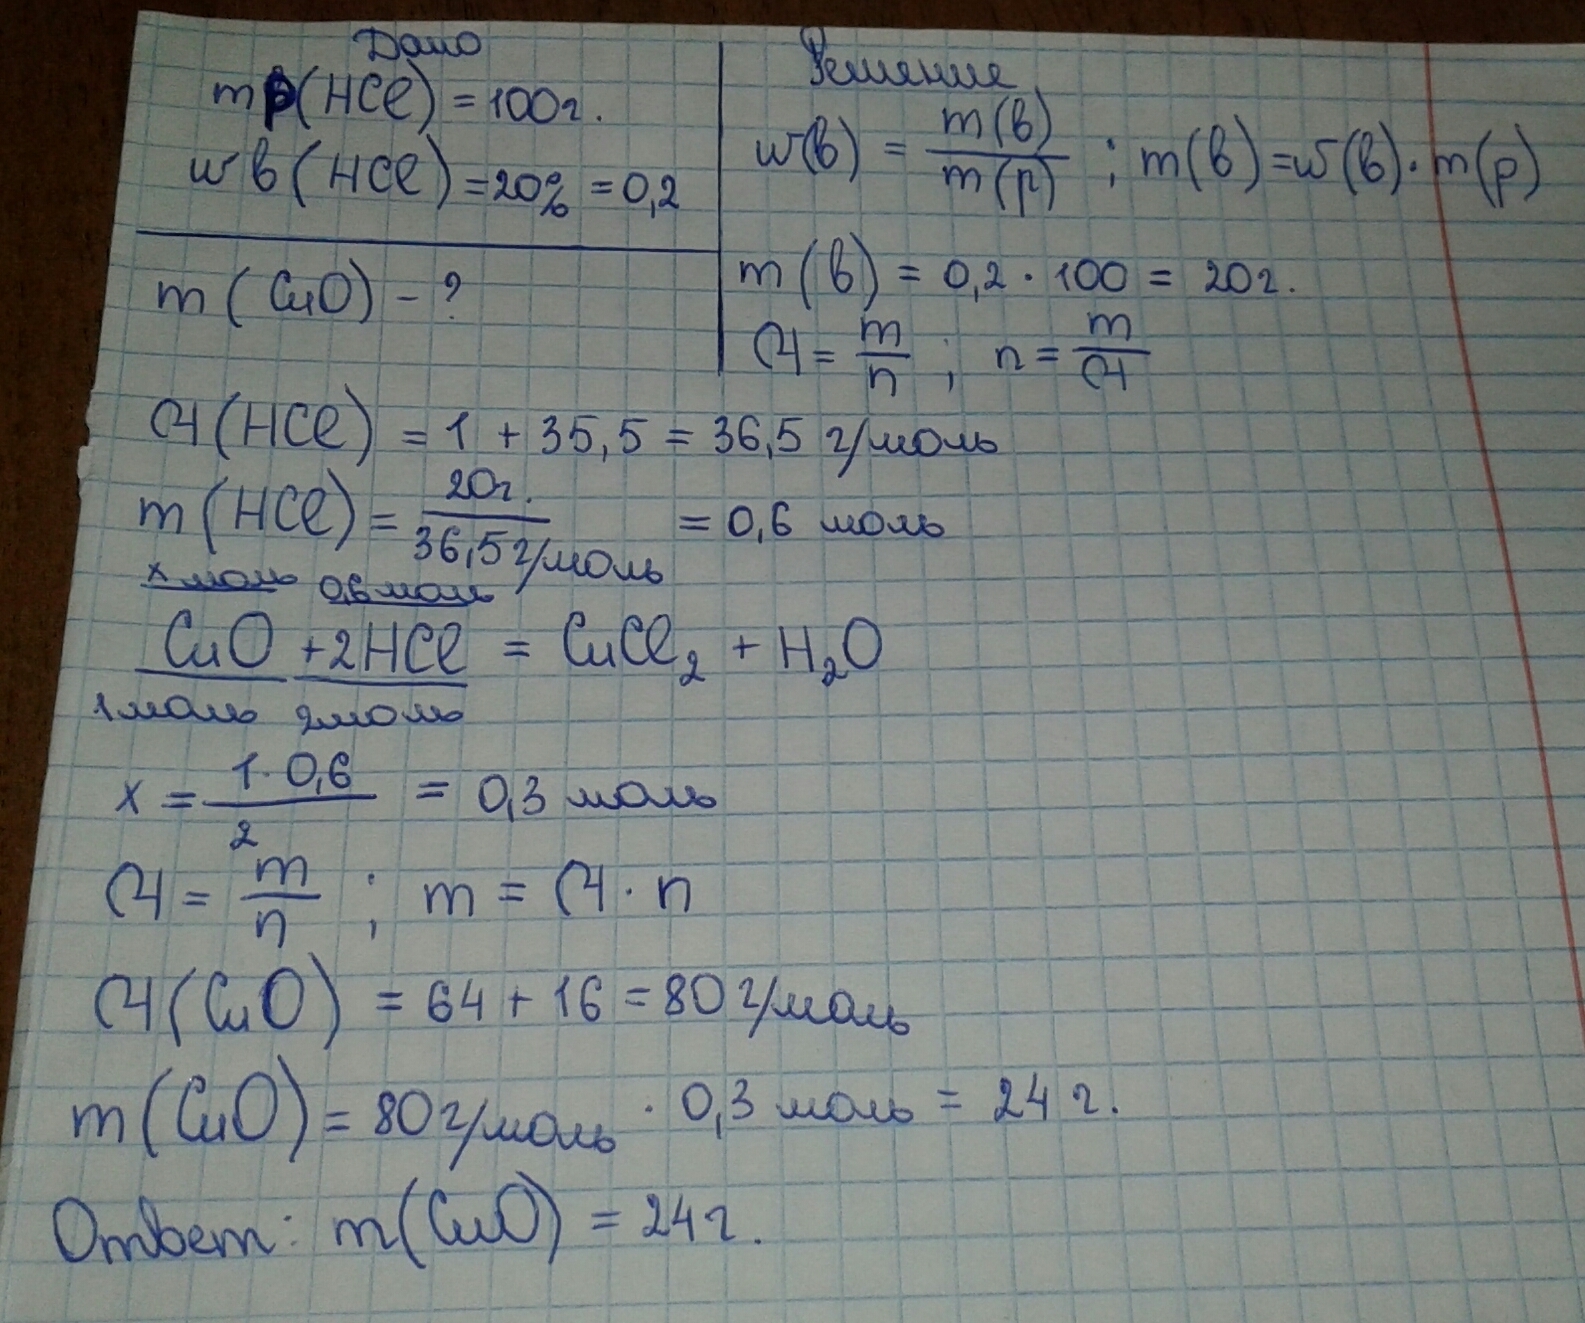 Дано
mр(HCl) = 100г.
wв(HCl) = 20% = 0,2
m(CuO) - ?
Решение
w(в) = m(в)/m(р) ; m(в) = w(в) · m(р)
m(в) = 0,2 · 100 = 20г.
M = m/n ; n = m/M
M(HCl) = 1 + 35,5 = 36,5 г/моль
m(HCl) = 20г./36,5 г/моль = 0,6 моль
x моль 0,6 моль
CuO + 2HCl = CuCl₂ + H₂O
1 моль 2 моль
x = 1·0,6/2 = 0,3 моль
M = m/n ; m = M · n
M(CuO) = 64 + 16 = 80 г/моль
m(CuO) = 80 г/моль · 0,3 моль = 24 г.
Ответ: m(CuO) = 24 г.